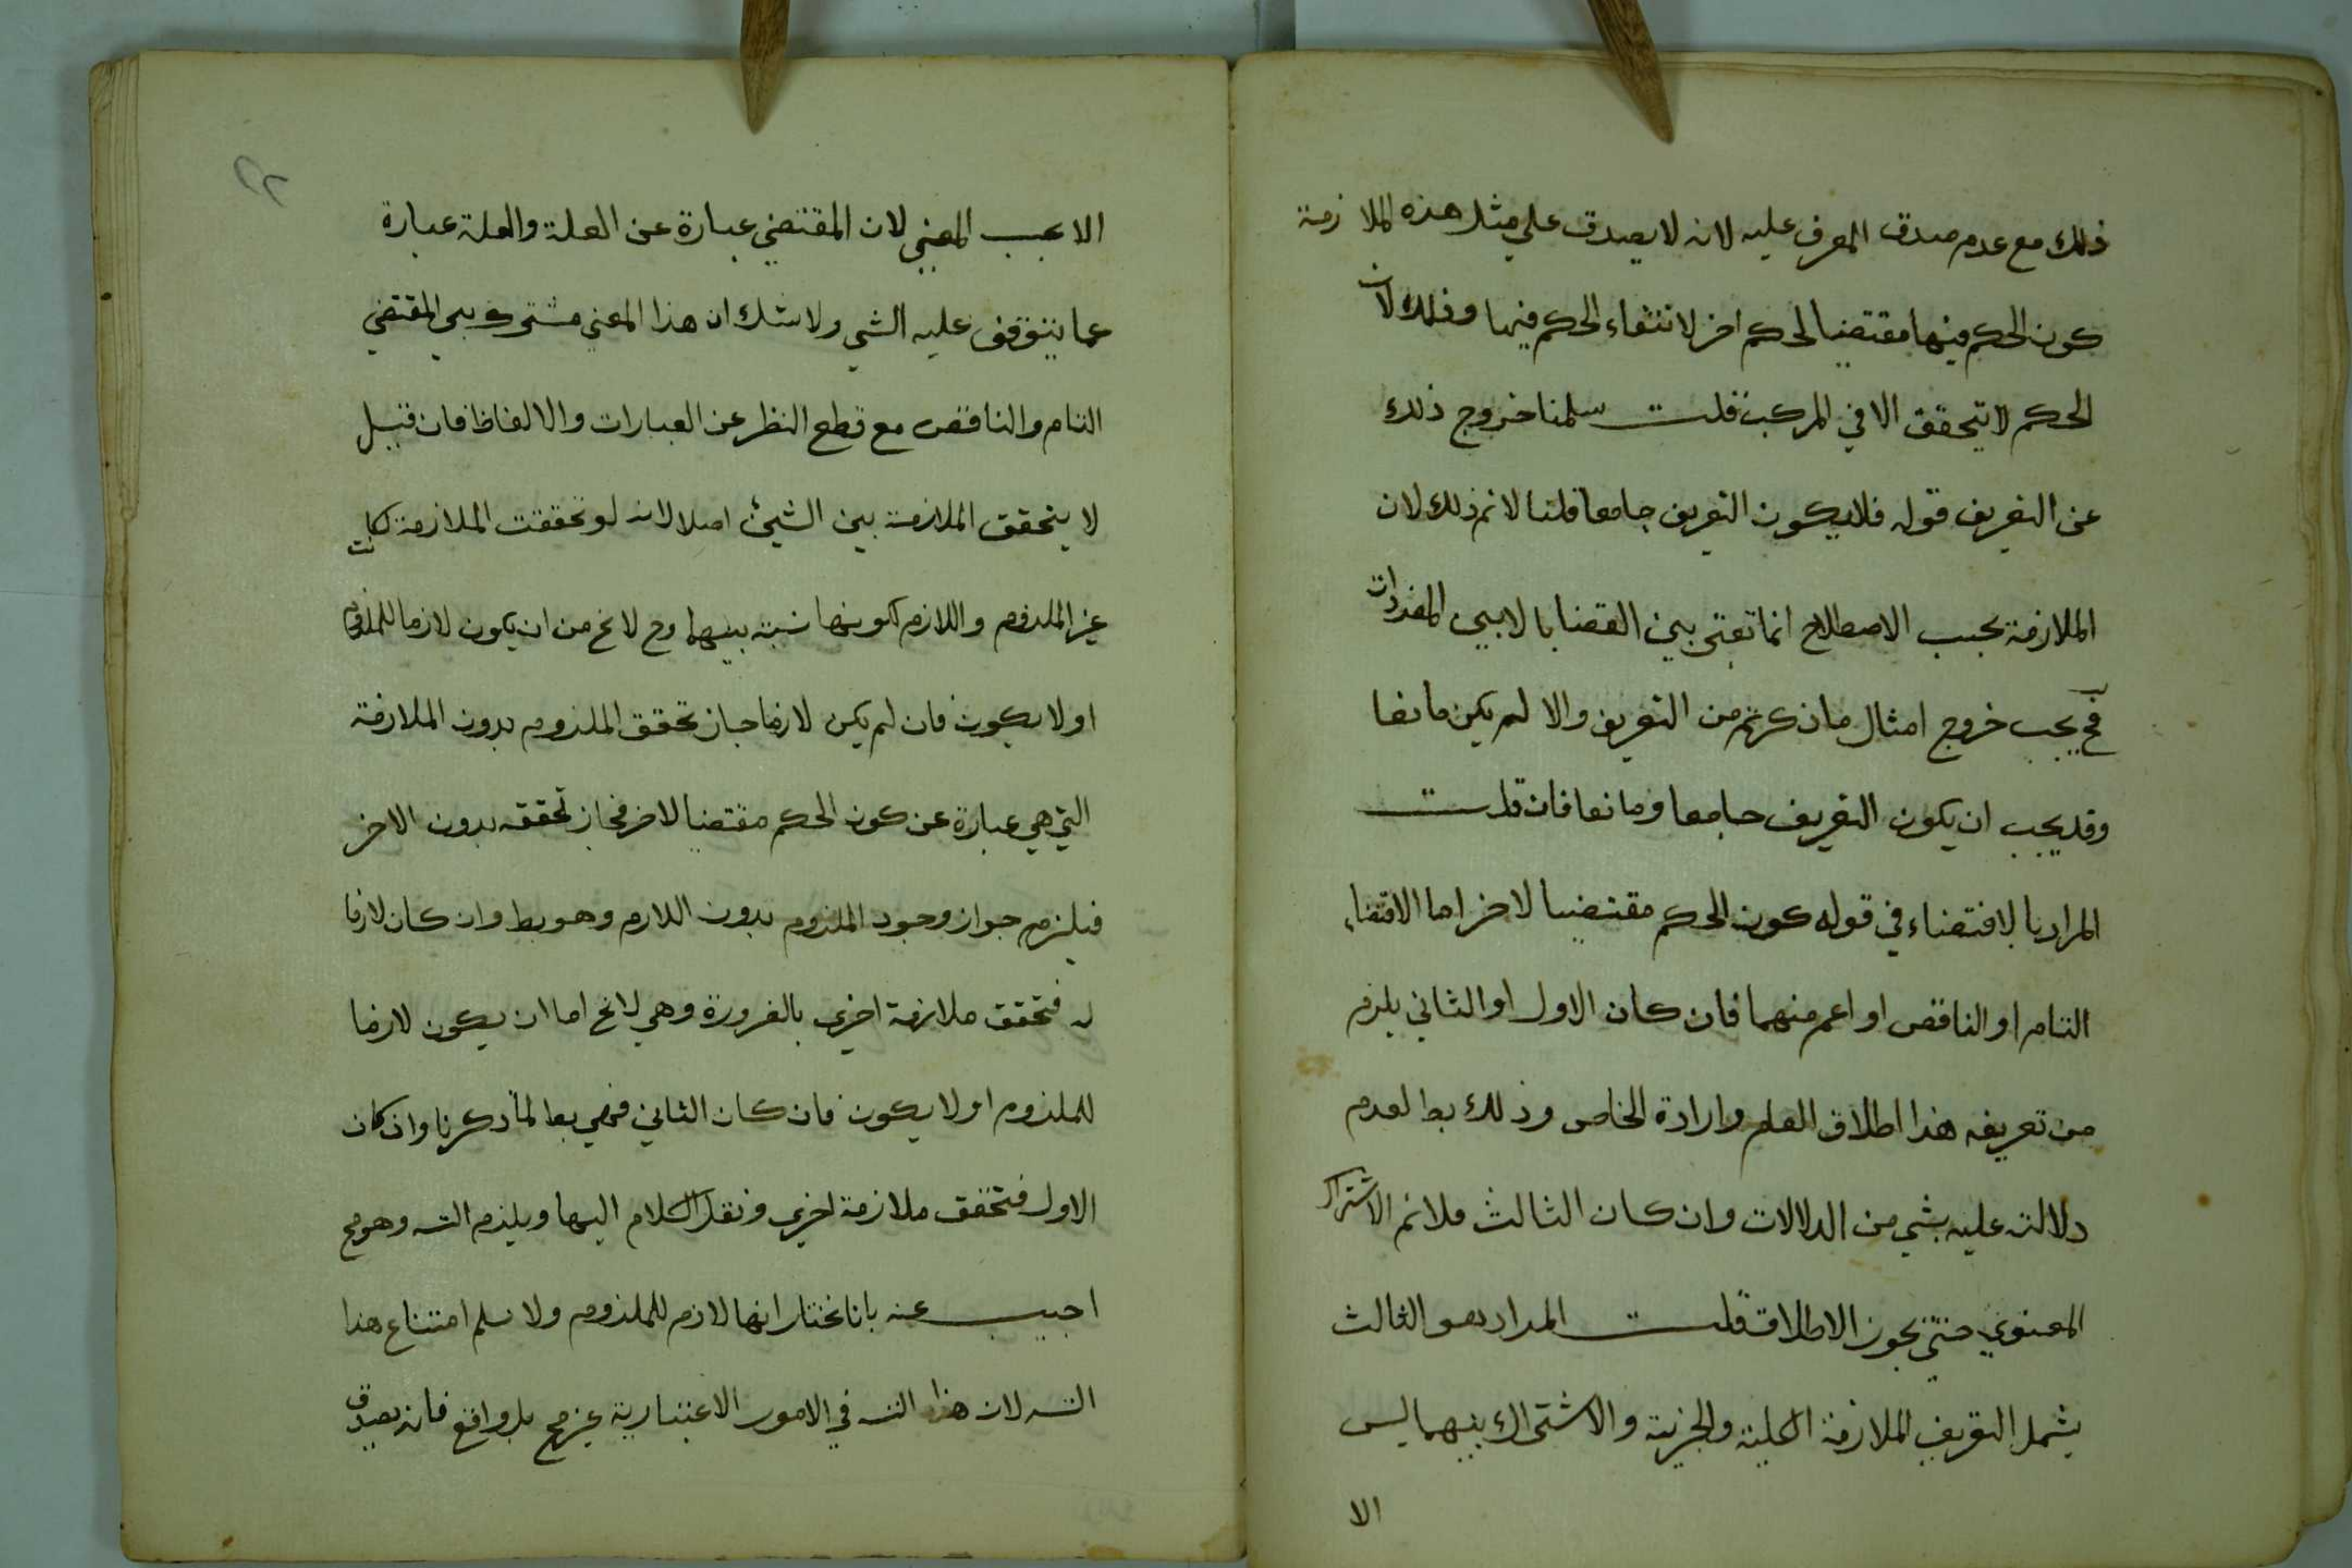 ذلك مع عدم صدق المعرف عليه لانه لا يصدق علي مثل هذه الملازمة
كون الحكم فيها مقتضيا لحكم اخر لانتفاء الحكم فيها وذلك لان
الحكم لا يتحقق الا في المركب قلت سلمنا خروج ذلك
عن التعريف قوله فلا يكون التعريف جامعا قلنا لا نم ذلك لان
الملازمة بحسب الاصطلاح انما تعتبر بين القضايا لا بين المفردات
فح يجب خروج امثال ما ذكرتم من التعريف والا لم يكن مانعا
وقد يجب ان يكون التعريف جامعا ومانعا فان قلت
المراد بالاقتضاء في قوله كون الحكم مقتضيا لاخر اما الاقتضاء
التام او الناقص او اعم منهما فان كان الاول او الثاني يلزم
من تعريفه هذا اطلاق العام وارادة الخاص وذلك بط لعدم
دلالته عليه بشي من الدلالات وان كان الثالث فلا نم الاشتراك
المعنوي حتي يجوز الاطلاق قلت المراد هو الثالث
يشمل التعريف الملازمة الكلية والجزئية والاشتراك بينهما ليس
الا
الا بحسب المعني لان المقتضي عبارة عن العلة والعلة عبارة
عما يتوقف عليه الشي ولا شك ان هذا المعني مشترك بين المقتضي
التام والناقص مع قطع النظر عن العبارات والالفاظ فان قيل
لا يتحقق الملازمة بين الشيئ اصلا لانه لو تحققت الملازمة كانت
غير الملزوم واللازم لكونها نسبة بينهما وح لا يخ من ان يكون لازما للملزوم
او لا يكون فان لم يكن لازما جاز تحقق الملزوم بدون الملازمة
التي هي عبارة عن كون الحكم مقتضيا لاخر فجاز تحققه بدون الاخر
فيلزم جواز وجود الملزوم بدون اللازم وهو بط وان كان لازما
له فتحقق ملازمة اخري بالضرورة وهي لا يخ اما ان يكون لازما
للملزوم او لا يكون فان كان الثاني فهي بط لما ذكرنا وان كان
الاول فتحقق ملازمة اخري وننقل الكلام اليها ويلزم التسـ وهو مح
اجيب عنه بانا نختار انها لازم للملزوم ولا نسلم امتناع هذا
التسـ لان هذا التسـ في الامور الاعتبارية غير مح بل واقع فانه يصدق